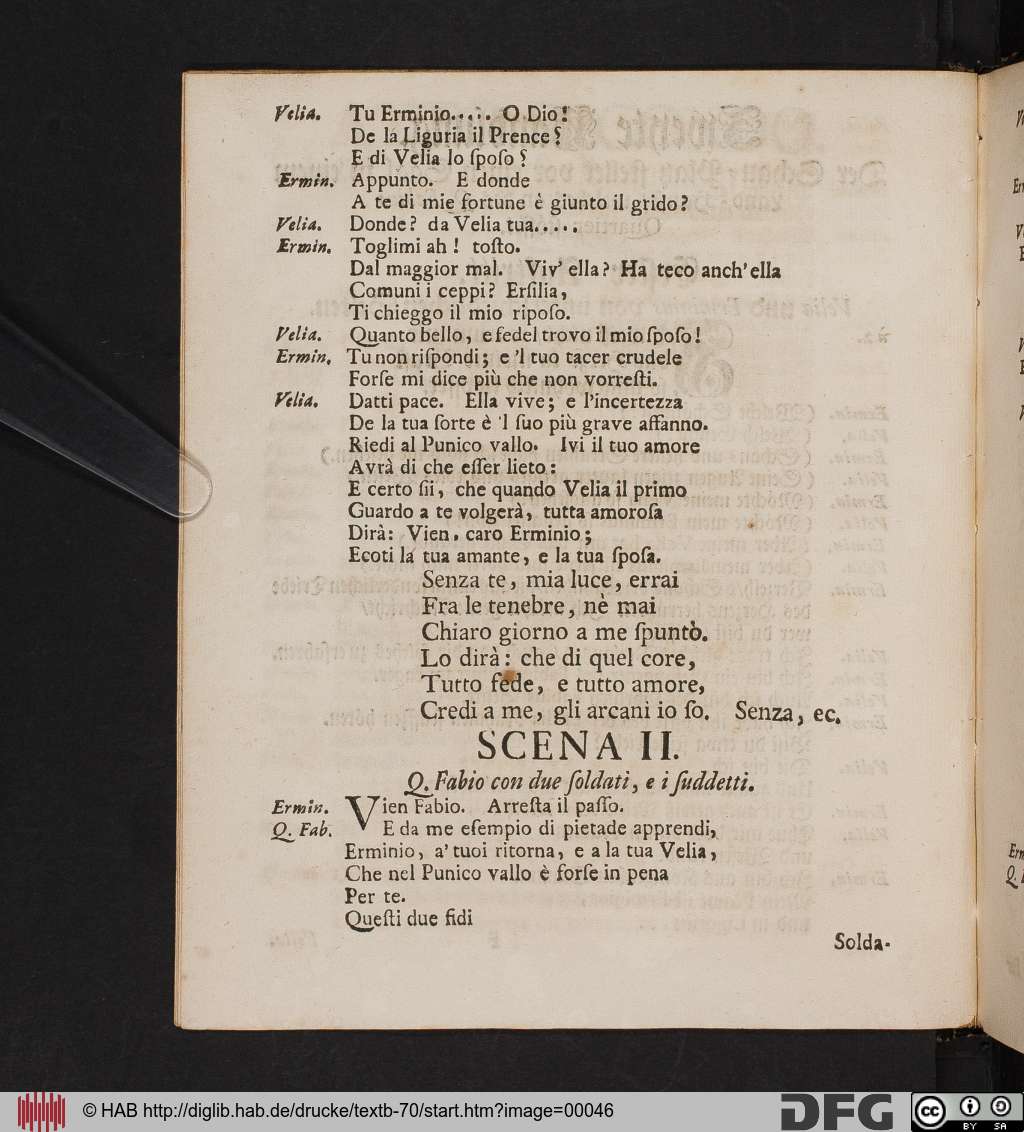 Velia. Tu Erminio..... O Dio!
De la Liguria il Prence?
E di Velia lo ſpoſo?
Ermin. Appunto. E donde
A te di mie fortune è giunto il grido?
Velia. Donde? da Velia tua.....
Ermin. Toglimi ah! toſto.
Dal maggior mal. Viv' ella? Ha teco anch' ella
Comuni i ceppi? Erſilia,
Ti chieggo il mio ripoſo.
Velia. Quanto bello, e fedel trovo il mio ſpoſo!
Ermin. Tu non riſpondi; e 'l tuo tacer crudele
Forſe mi dice più che non vorreſti.
Velia. Datti pace. Ella vive; e l'incertezza
De la tua ſorte è 'l ſuo più grave affanno.
Riedi al Punico vallo. Ivi il tuo amore
Avrà di che eſſer lieto:
E certo ſii, che quando Velia il primo
Guardo a te volgerà, tutta amoroſa
Dirà: Vien. caro Erminio;
Ecoti la tua amante, e la tua ſpoſa.
Senza te, mia luce, errai
Fra le tenebre, nè mai
Chiaro giorno a me ſpuntò.
Lo dirà: che di quel core,
Tutto fede, e tutto amore,
Credi a me, gli arcani io ſo. Senza, ec.
SCENA II.
Q. Fabio con due ſoldati, e i ſuddetti.
Ermin. Vien Fabio. Arreſta il paſſo.
Q. Fab. E da me eſempio di pietade apprendi,
Erminio, a' tuoi ritorna, e a la tua Velia,
Che nel Punico vallo è forſe in pena
Per te.
Queſti due fidi
Solda-
© HAB http://diglib.hab.de/drucke/textb-70/start.htm?image=00046
DFG
cc BY SA